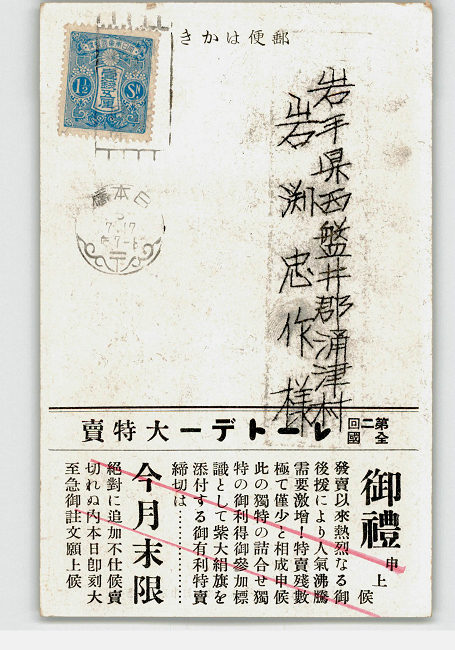 郵便はかき
1½ Sn
日本橋
7.17
岩手県西盤井郡涌津村
岩渕忠作様
第二回全國レートデー大特賣
御禮申上候
發賣以來熱烈なる御
後援により人氣沸騰
需要激増!特賣殘數
極て僅少と相成申候
此の獨特の詰合せ獨
特の御利得御參加標
識として紫大絹旗を
添付する御有利特賣
締切は……………
今月末限
絕對に追加不仕候賣
切れぬ内本日卽刻大
至急御註文願上候